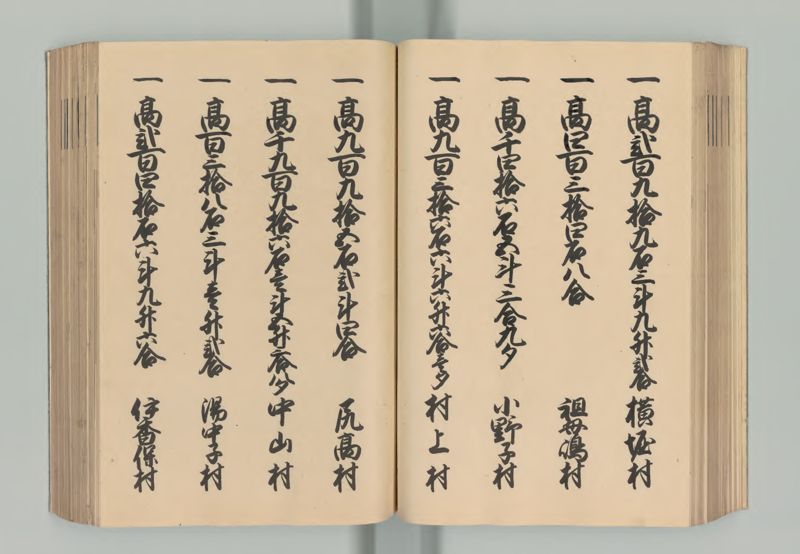 一 高弐百九拾九石三斗九升弐合 横堀村
一 高四百三拾四石八合 祖母嶋村
一 高千四拾六石五斗三合九夕 小野子村
一 高九百三拾六石六斗六升六合壱夕 村上村
一 高九百九拾五石弐斗四合 尻高村
一 高千九百九拾六石壱斗五升 中山村
一 高百三拾八石三斗壱升弐合 湯中子村
一 高弐百四拾石六斗九升六合 伊香保村